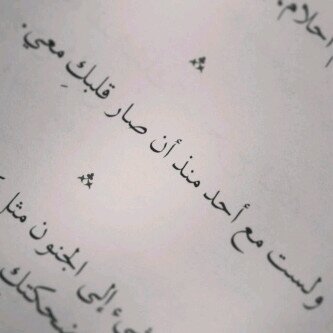 احلام.
ولست مع أحد منذ أن صار قلبكِ معي.
إلى الجنون مثل